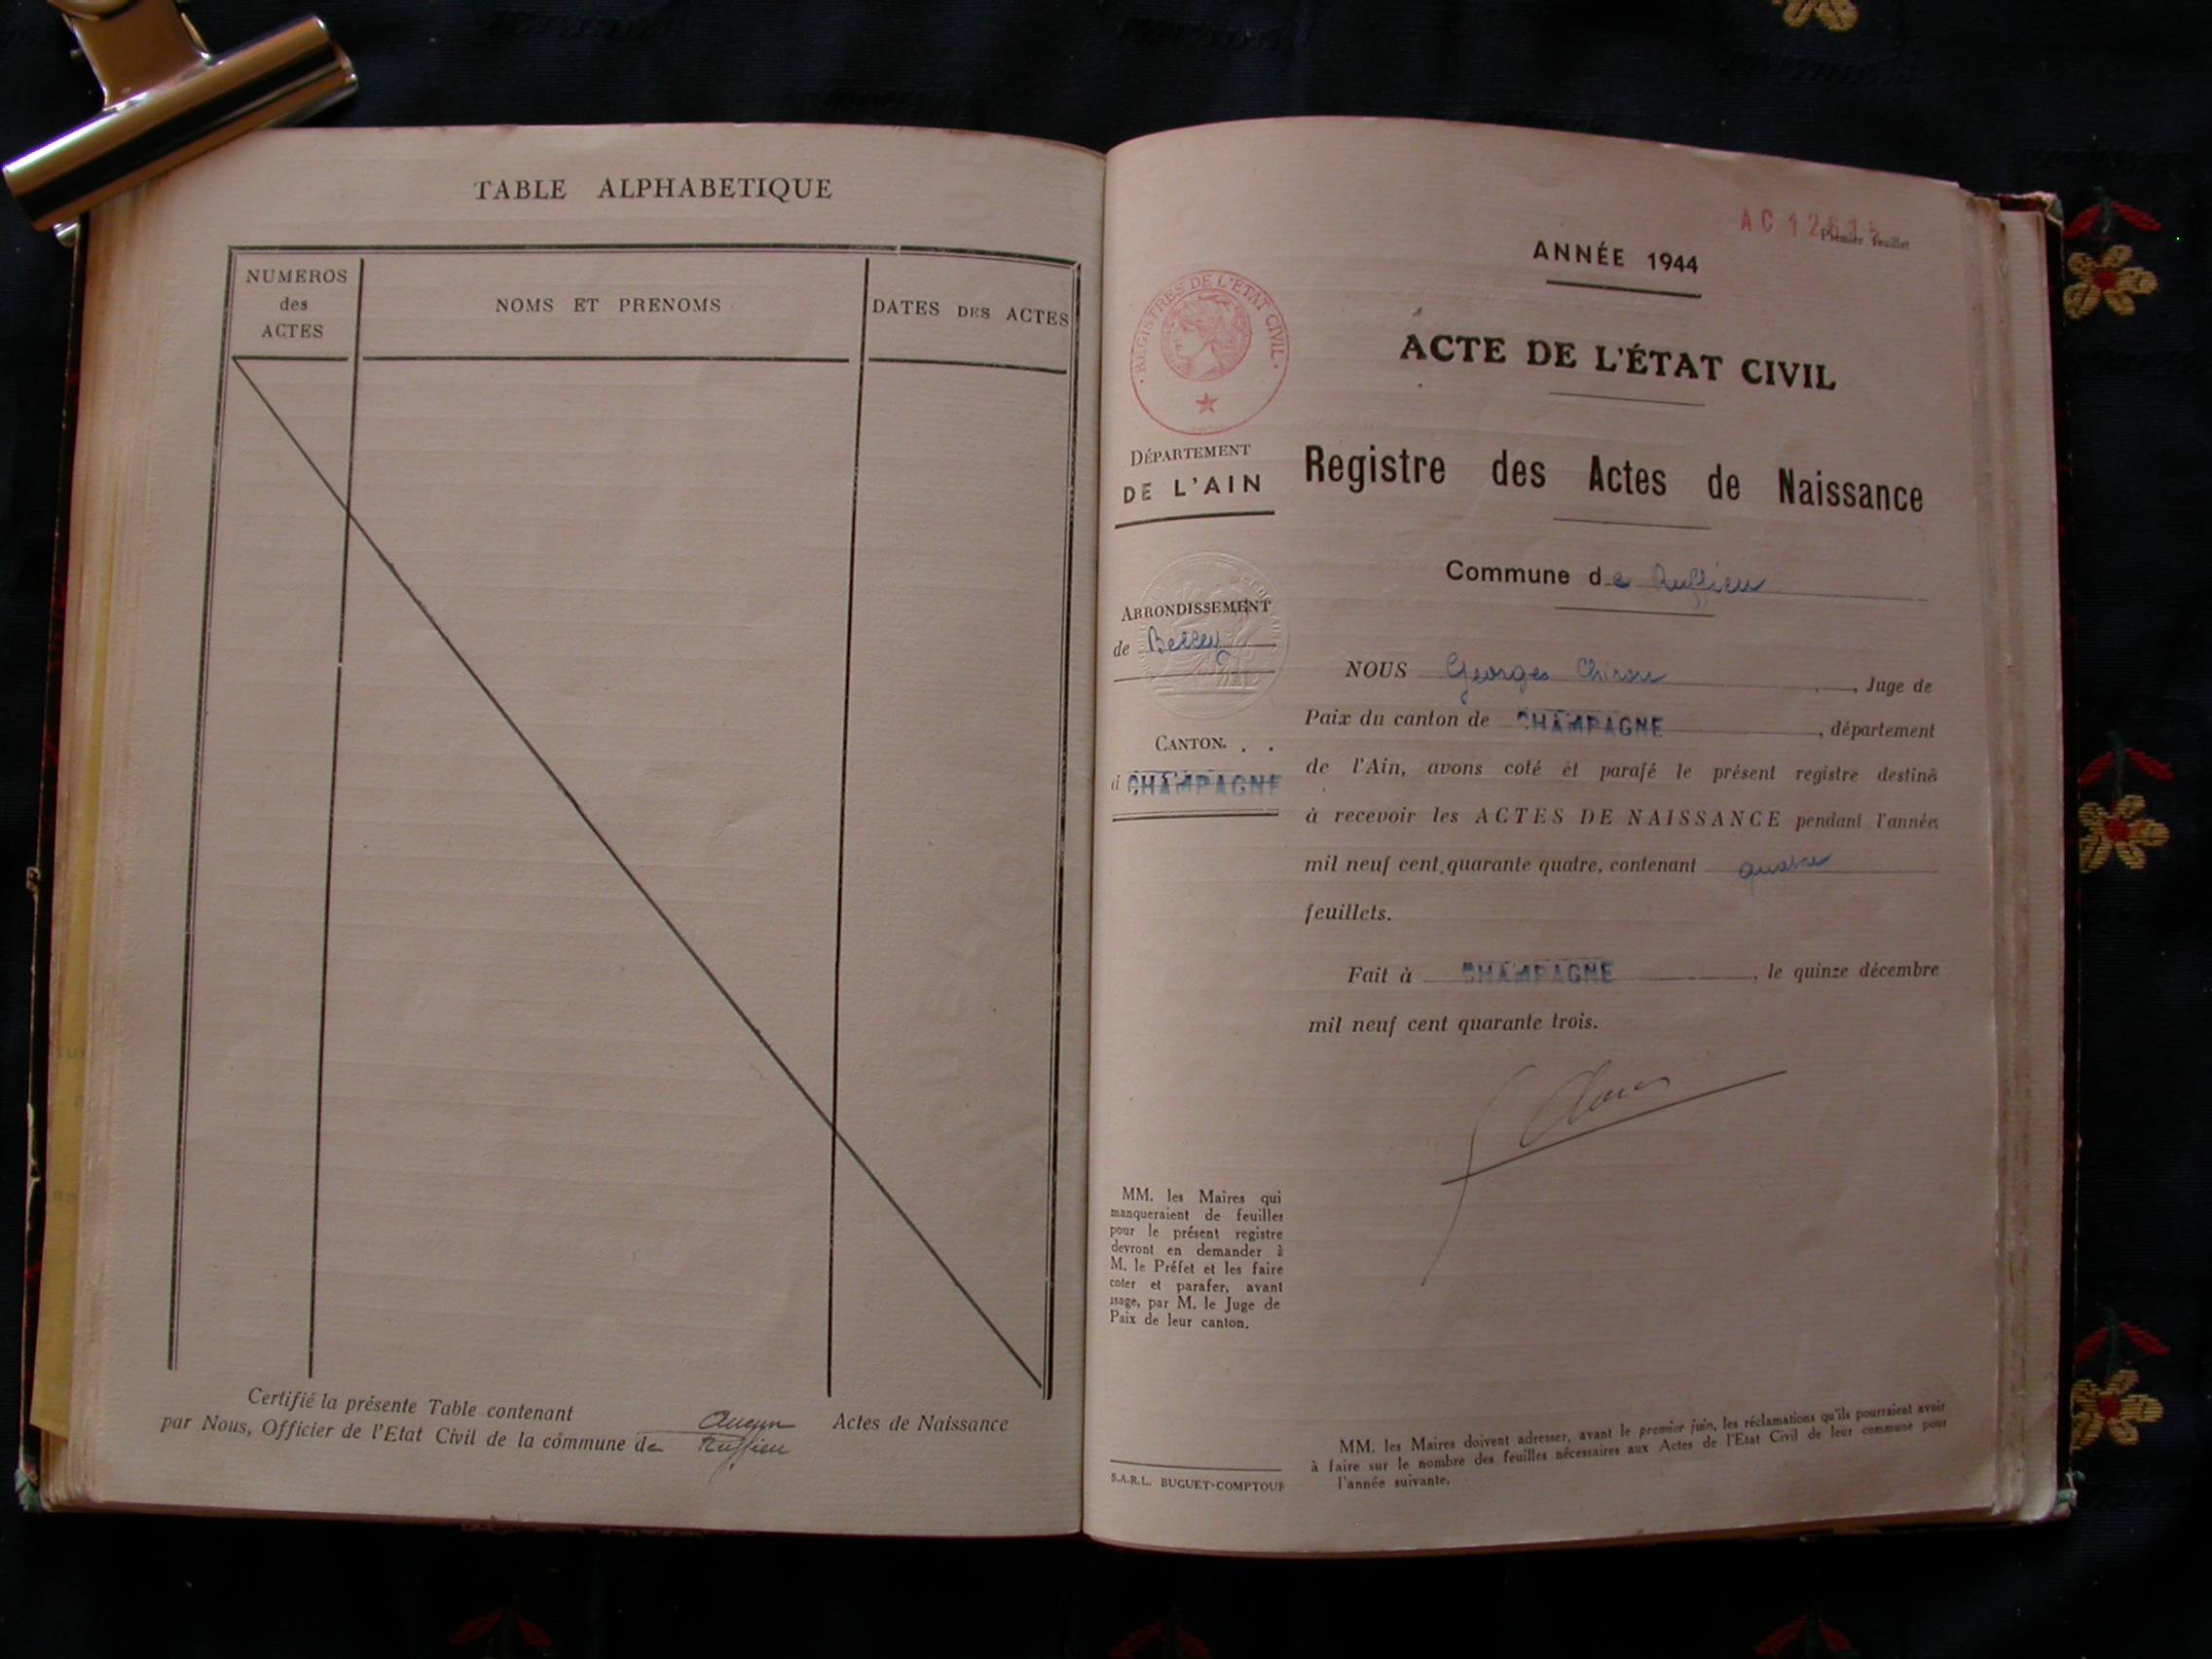 TABLE ALPHABETIQUE
NUMEROS
des
ACTES
NOMS ET PRENOMS
DATES DES ACTES
Certifié la présente Table contenant Aucun Actes de Naissance
par Nous, Officier de l'Etat Civil de la commune de Ruffieu
AC
Premier feuillet
ANNÉE 1944
REGISTRES DE L'ETAT CIVIL
ACTE DE L'ÉTAT CIVIL
DÉPARTEMENT
DE L'AIN
Registre des Actes de Naissance
Commune de Ruffieu
ARRONDISSEMENT
de Belley
CANTON
d CHAMPAGNE
NOUS Georges , Juge de
Paix du canton de CHAMPAGNE , département
de l'Ain, avons coté et parafé le présent registre destiné
à recevoir les ACTES DE NAISSANCE pendant l'année
mil neuf cent quarante quatre, contenant quatre
feuillets.
Fait à CHAMPAGNE , le quinze décembre
mil neuf cent quarante trois.
MM. les Maires qui
manqueraient de feuilles
pour le présent registre
devront en demander à
M. le Préfet et les faire
coter et parafer, avant
usage, par M. le Juge de
Paix de leur canton.
S.A.R.L. BUGUET-COMPTOUR
MM. les Maires doivent adresser, avant le premier juin, les réclamations qu'ils pourraient avoir
à faire sur le nombre des feuilles nécessaires aux Actes de l'Etat Civil de leur commune pour
l'année suivante.